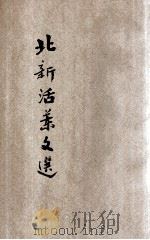 北新活葉文選